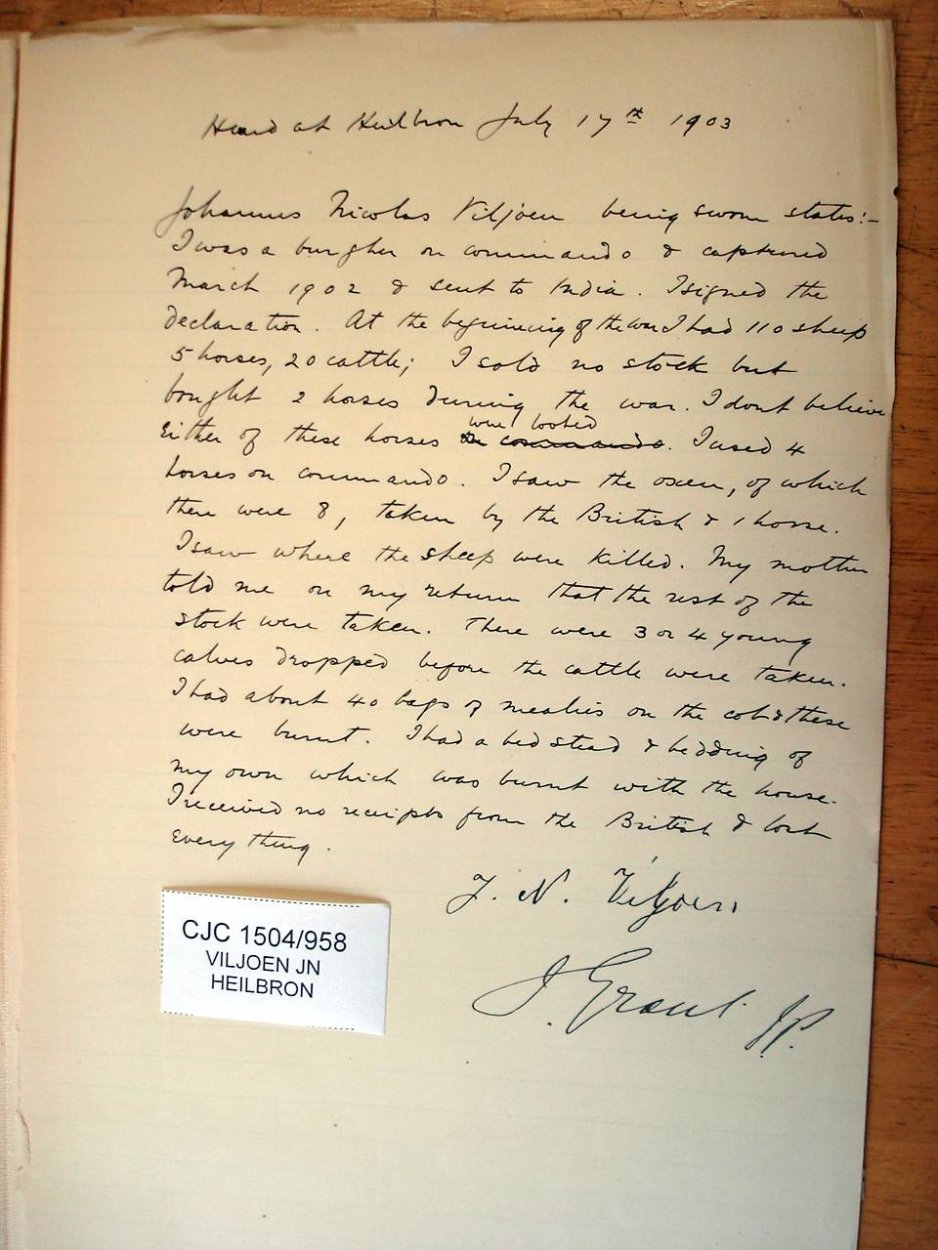 Heard at Heilbron July 17th 1903
Johannes Nicolas Viljoen being sworn states:-
I was a burgher on commando & captured
March 1902 & sent to India. I signed the
declaration. At the beginning of the war I had 110 sheep
5 horses, 20 cattle; I sold no stock but
bought 2 horses during the war. I dont believe
were looted
either of these horses on commando. I used 4
horses on commando. I saw the oxen, of which
there were 8, taken by the British & 1 horse.
I saw where the sheep were killed. My mother
told me on my return that the rest of the
stock were taken. There were 3 or 4 young
calves dropped before the cattle were taken.
I had about 40 bags of mealies on the cob & these
were burnt. I had a bedstead & bedding of
my own which was burnt with the house.
I received no receipts from the British & lost
everything.
J. N. Viljoen
J. Grant JP.
CJC 1504/958
VILJOEN JN
HEILBRON